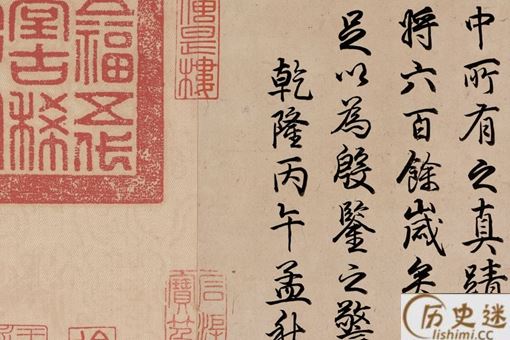 中所有之真蹟
將六百餘歲矣
足以為殷鑒之警
乾隆丙午孟秋
福五代
堂古稀
历史迷
lishimi.cc